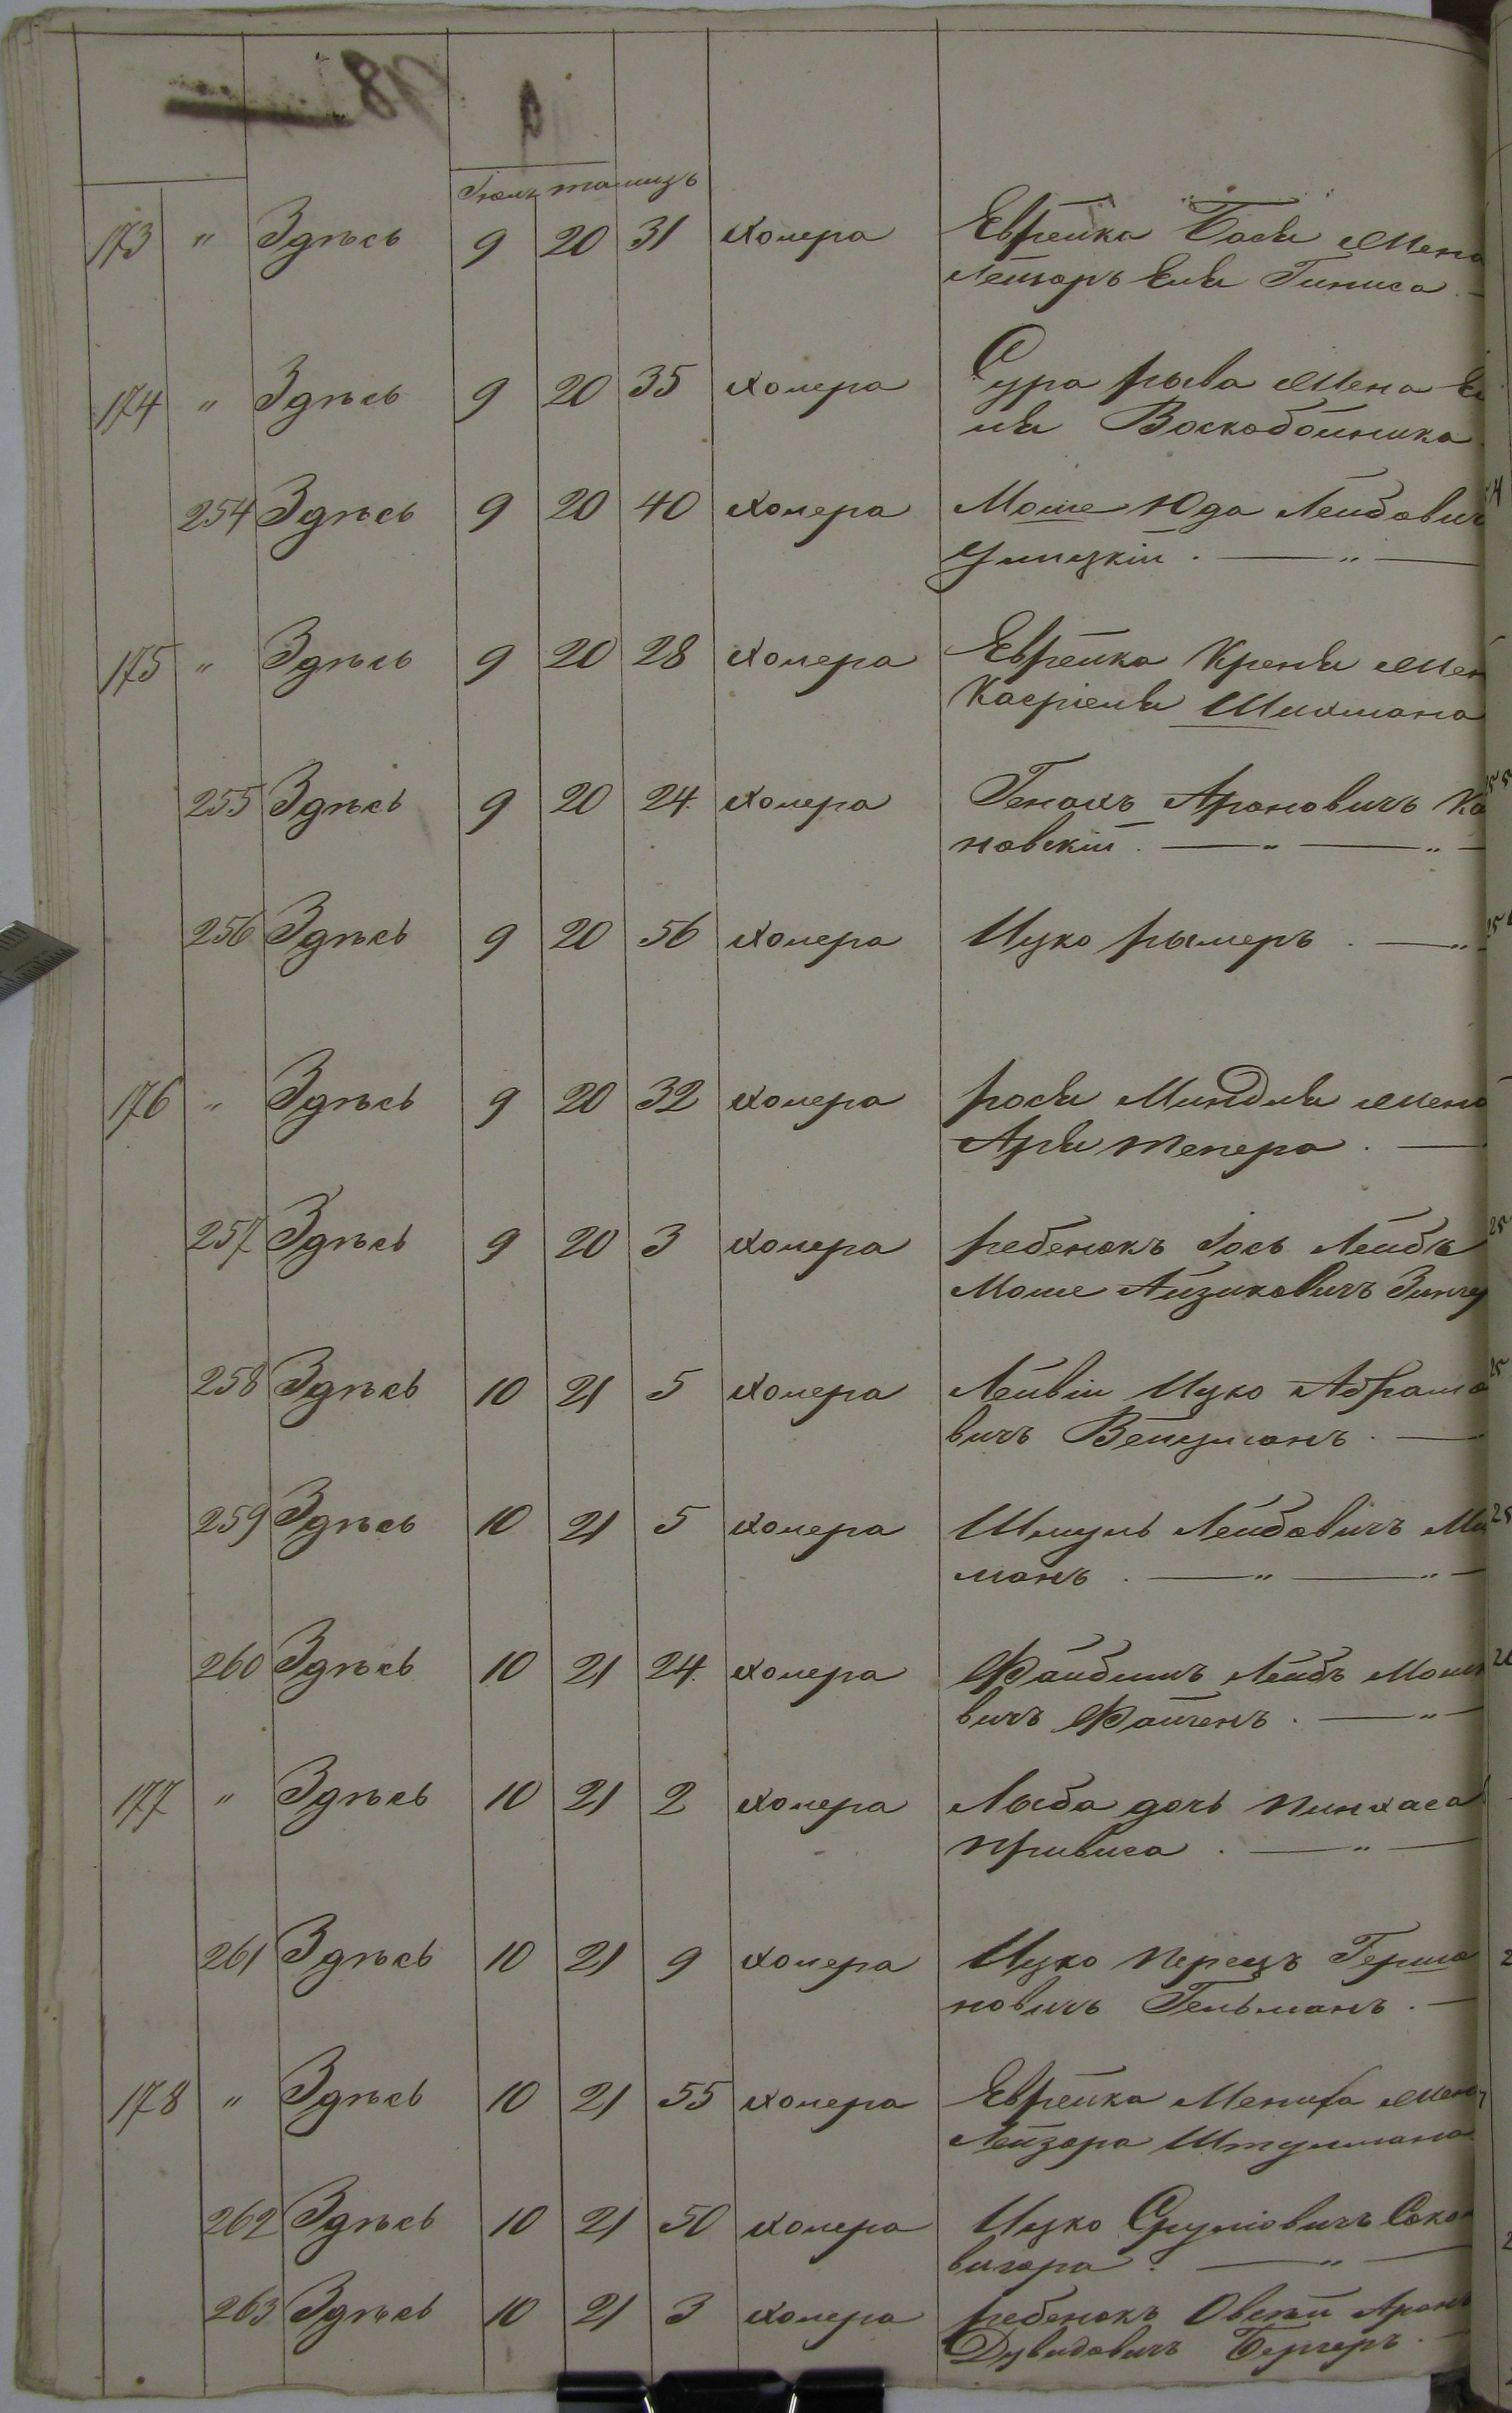 Іюль тамизъ
173 " Здѣсь 9 20 31 холера Еврейка Бася жена
Лейзоръ Еля Гиниса. —
174 " Здѣсь 9 20 35 холера Сура рыва жена Е
ля Воскобойника
254 Здѣсь 9 20 40 холера Моше Юда Лейбович
Улицкій. — " —
175 " Здѣсь 9 20 28 холера Еврейка Креня жен
Касріеля Шихмана
255 Здѣсь 9 20 24. холера Генахъ Ароновичъ Ка
новскій. — " — " —
256 Здѣсь 9 20 56 холера Ицко рымеръ. — "
176 " Здѣсь 9 20 32 холера рося Миндля жена
Аря тепера. —
257 Здѣсь 9 20 3 холера ребенокъ Іось Лейбъ
Моше Айзиковичъ Зингер
258 Здѣсь 10 21 5 холера Лейвій Ицко Абрамо
вичъ Вейцманъ. —
259 Здѣсь 10 21 5 холера Шмуль Лейбовичъ Ми
манъ. — " — " —
260 Здѣсь 10 21 24. холера Файбишъ Лейбъ Мошк
вичъ Файгенъ. — " —
177 " Здѣсь 10 21 2 холера Лыба дочь пинхаса
привиса. — " —
261 Здѣсь 10 21 9 холера Ицко перецъ Гершо
новичъ Гельманъ. —
178 " Здѣсь 10 21 55 холера Еврейка жен
Лейзора Штульмана
262 Здѣсь 10 21 50 холера Ицко Сруліовичъ Соко
вигора. — " —
263 Здѣсь 10 21 3 холера ребенокъ Овсѣй Аронъ
Дувидовичъ Бергеръ. —